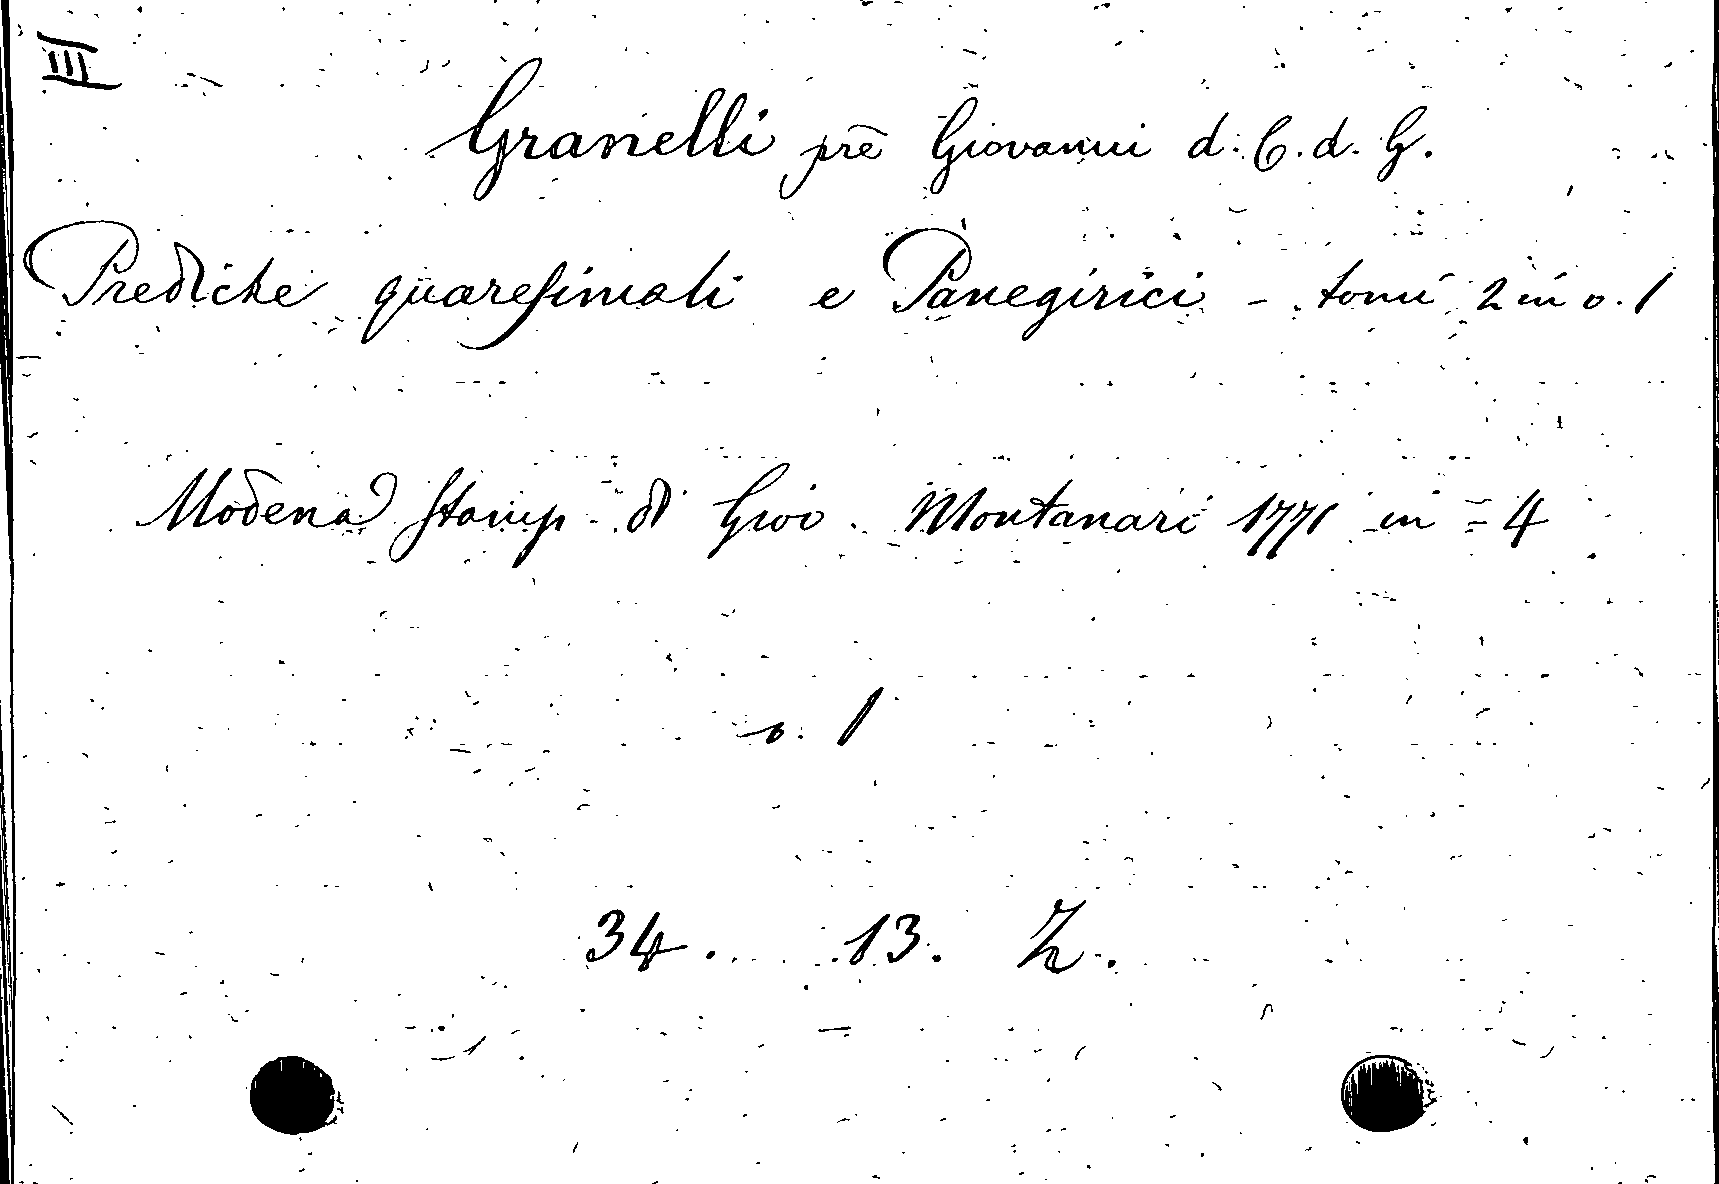 III
Granelli prē Giovanni d. C. d. G.
Prediche quaresimali e Panegirici - tomi 2 in v. 1
Modena Stamp. di Giov. Montanari 1771 in = 4
v. 1
34. 13. Z.